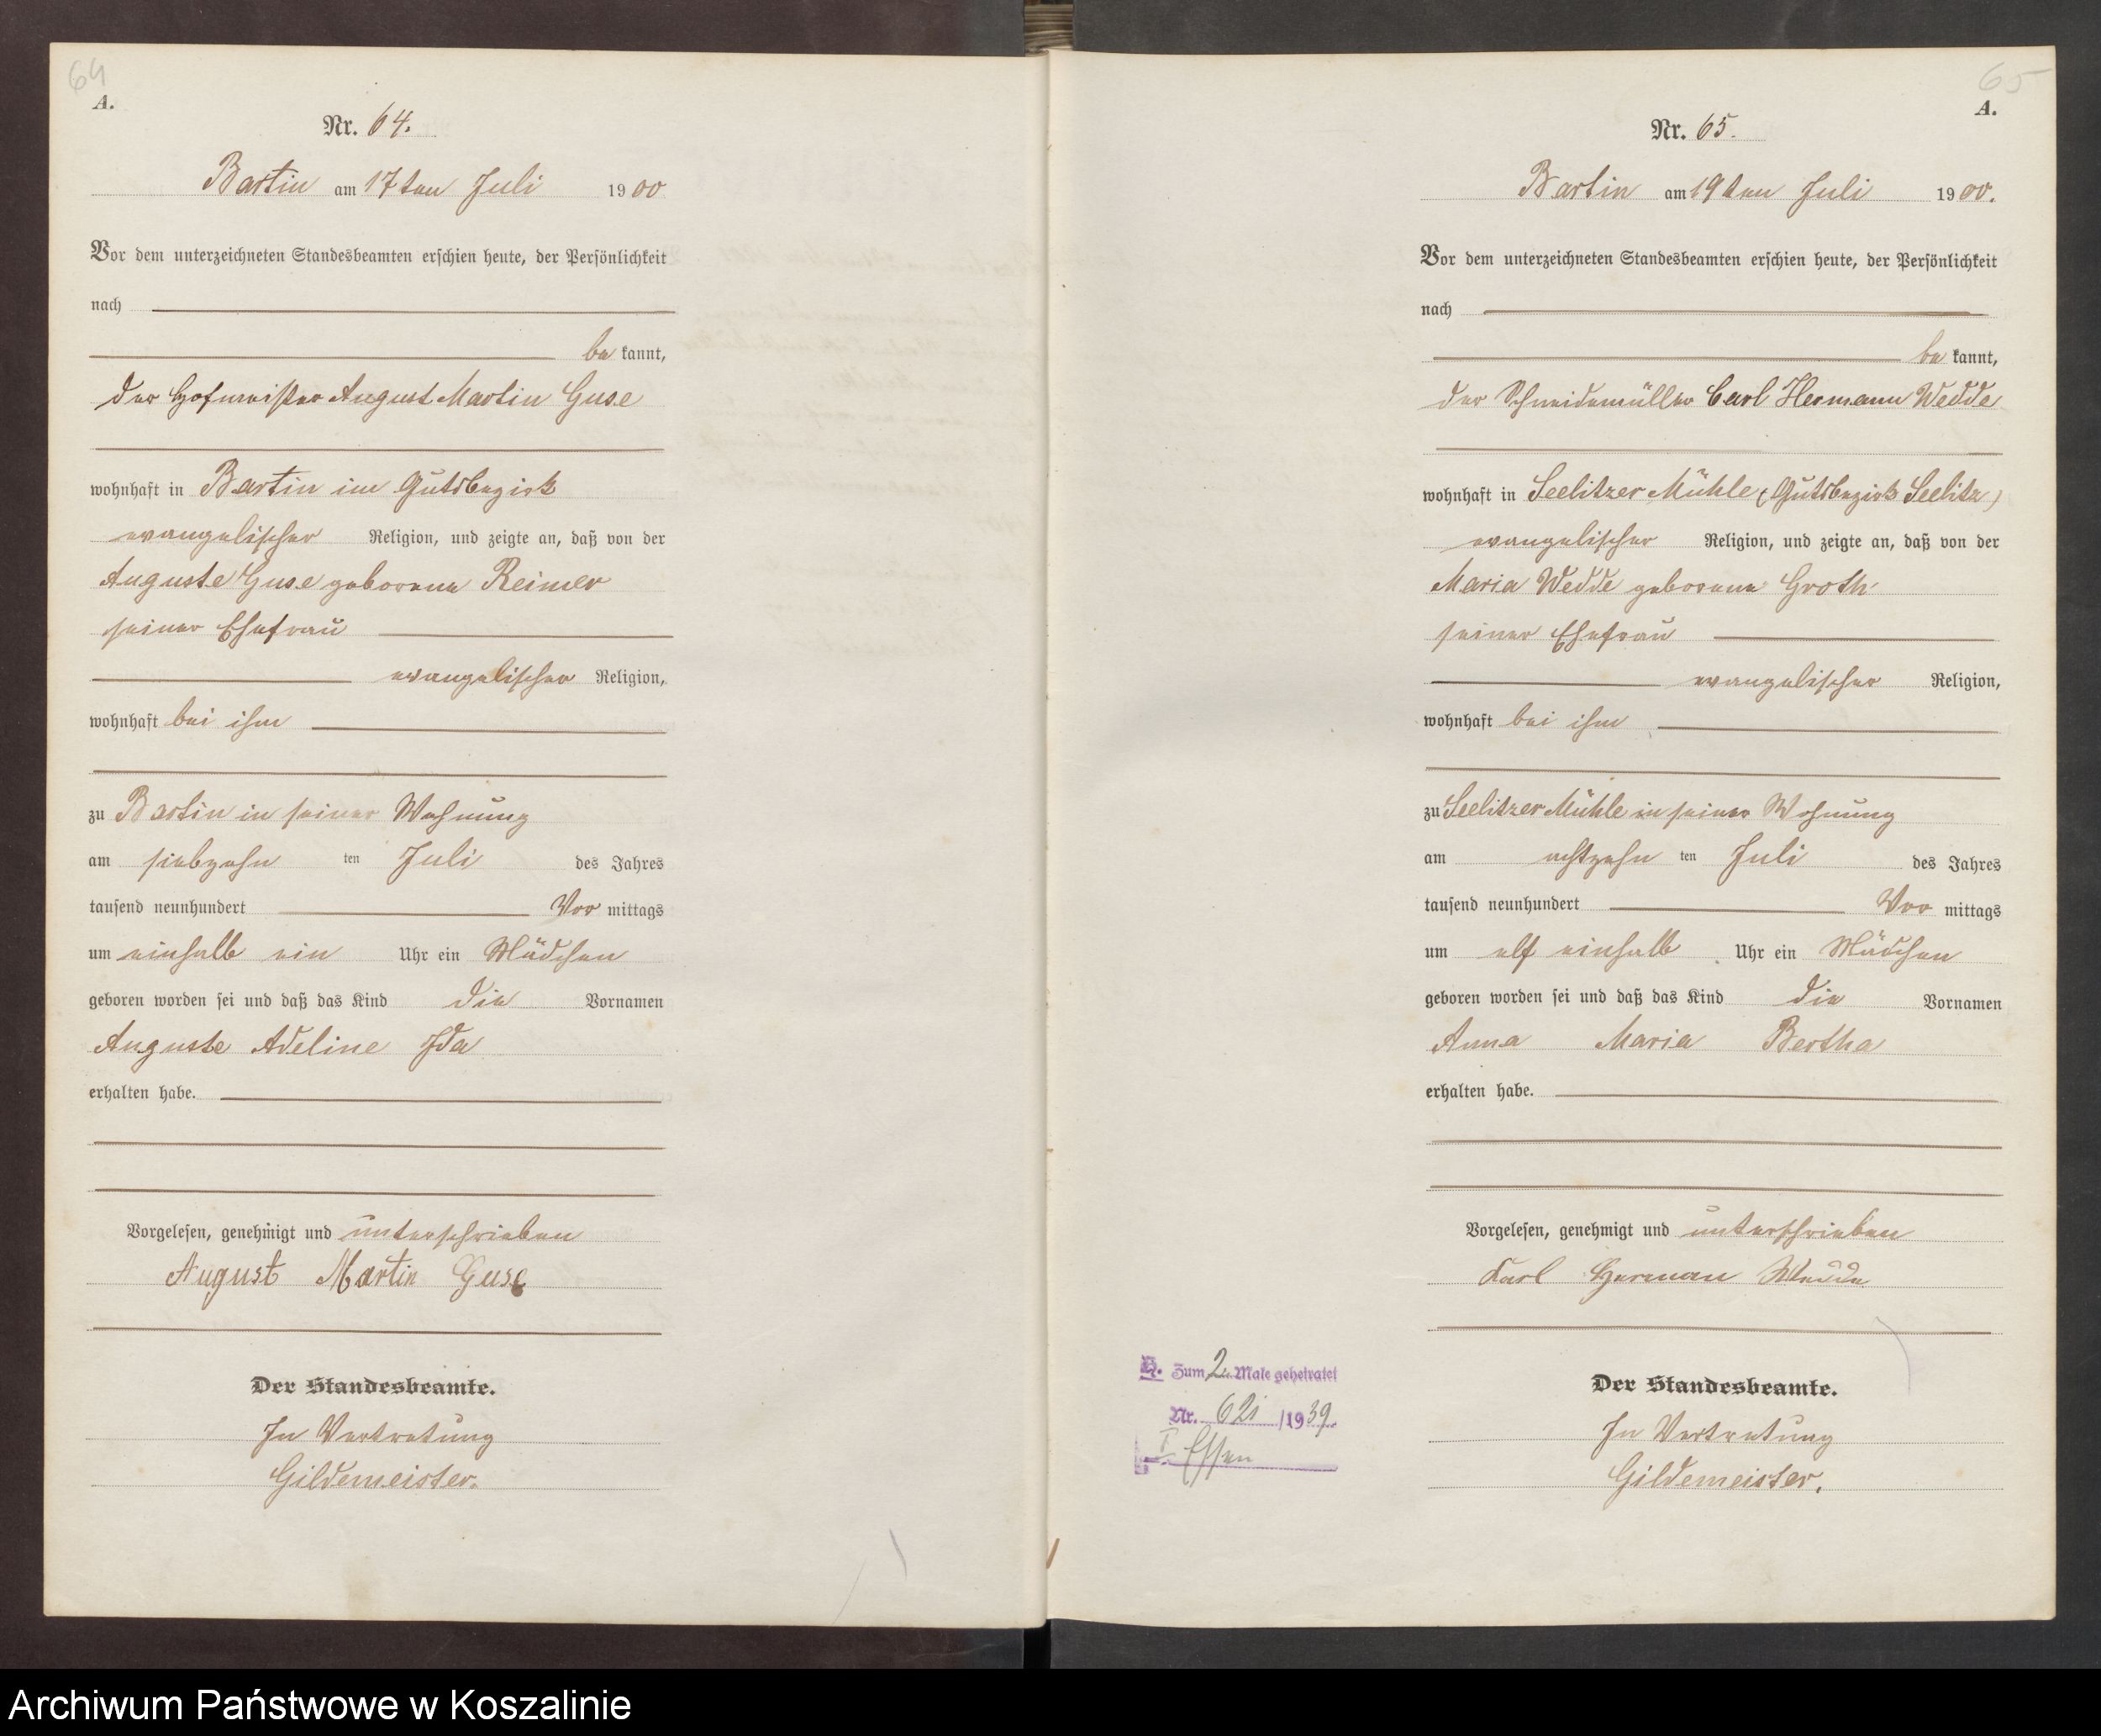 64
A.
Nr. 64.
Bartin am 17ten Juli 1900
Vor dem unterzeichneten Standesbeamten erschien heute, der Persönlichkeit
nach
be kannt,
der Hofmeister August Martin Guse
wohnhaft in Bartin im Gutsbezirk
evangelischer Religion, und zeigte an, daß von der
Auguste Guse geborene Reimer
seiner Ehefrau
evangelischer Religion,
wohnhaft bei ihm
zu Bartin in seiner Wohnung
am siebzehn ten Juli des Jahres
tausend neunhundert Vor mittags
um einhalb ein Uhr ein Mädchen
geboren worden sei und daß das Kind die Vornamen
Auguste Adeline Ida
erhalten habe.
Vorgelesen, genehmigt und unterschrieben
August Martin Guse
Der Standesbeamte.
In Vertretung
Gildemeister.
65
A.
Nr. 65.
Bartin am 19ten Juli 1900.
Vor dem unterzeichneten Standesbeamten erschien heute, der Persönlichkeit
nach
be kannt,
der Schneidemüller Carl Hermann Wedde
wohnhaft in Seelitzer Mühle (Gutsbezirk Seelitz)
evangelischer Religion, und zeigte an, daß von der
Maria Wedde geborene Groth
seiner Ehefrau
evangelischer Religion,
wohnhaft bei ihm
zu Seelitzer Mühle in seiner Wohnung
am achtzehn ten Juli des Jahres
tausend neunhundert Vor mittags
um elf einhalb Uhr ein Mädchen
geboren worden sei und daß das Kind die Vornamen
Anna Maria Bertha
erhalten habe.
Vorgelesen, genehmigt und unterschrieben
Karl Herman Wedde
Der Standesbeamte.
In Vertretung
Gildemeister.
H. Zum 2. Male geheiratet
Nr. 621 /1939.
I Essen
Archiwum Państwowe w Koszalinie